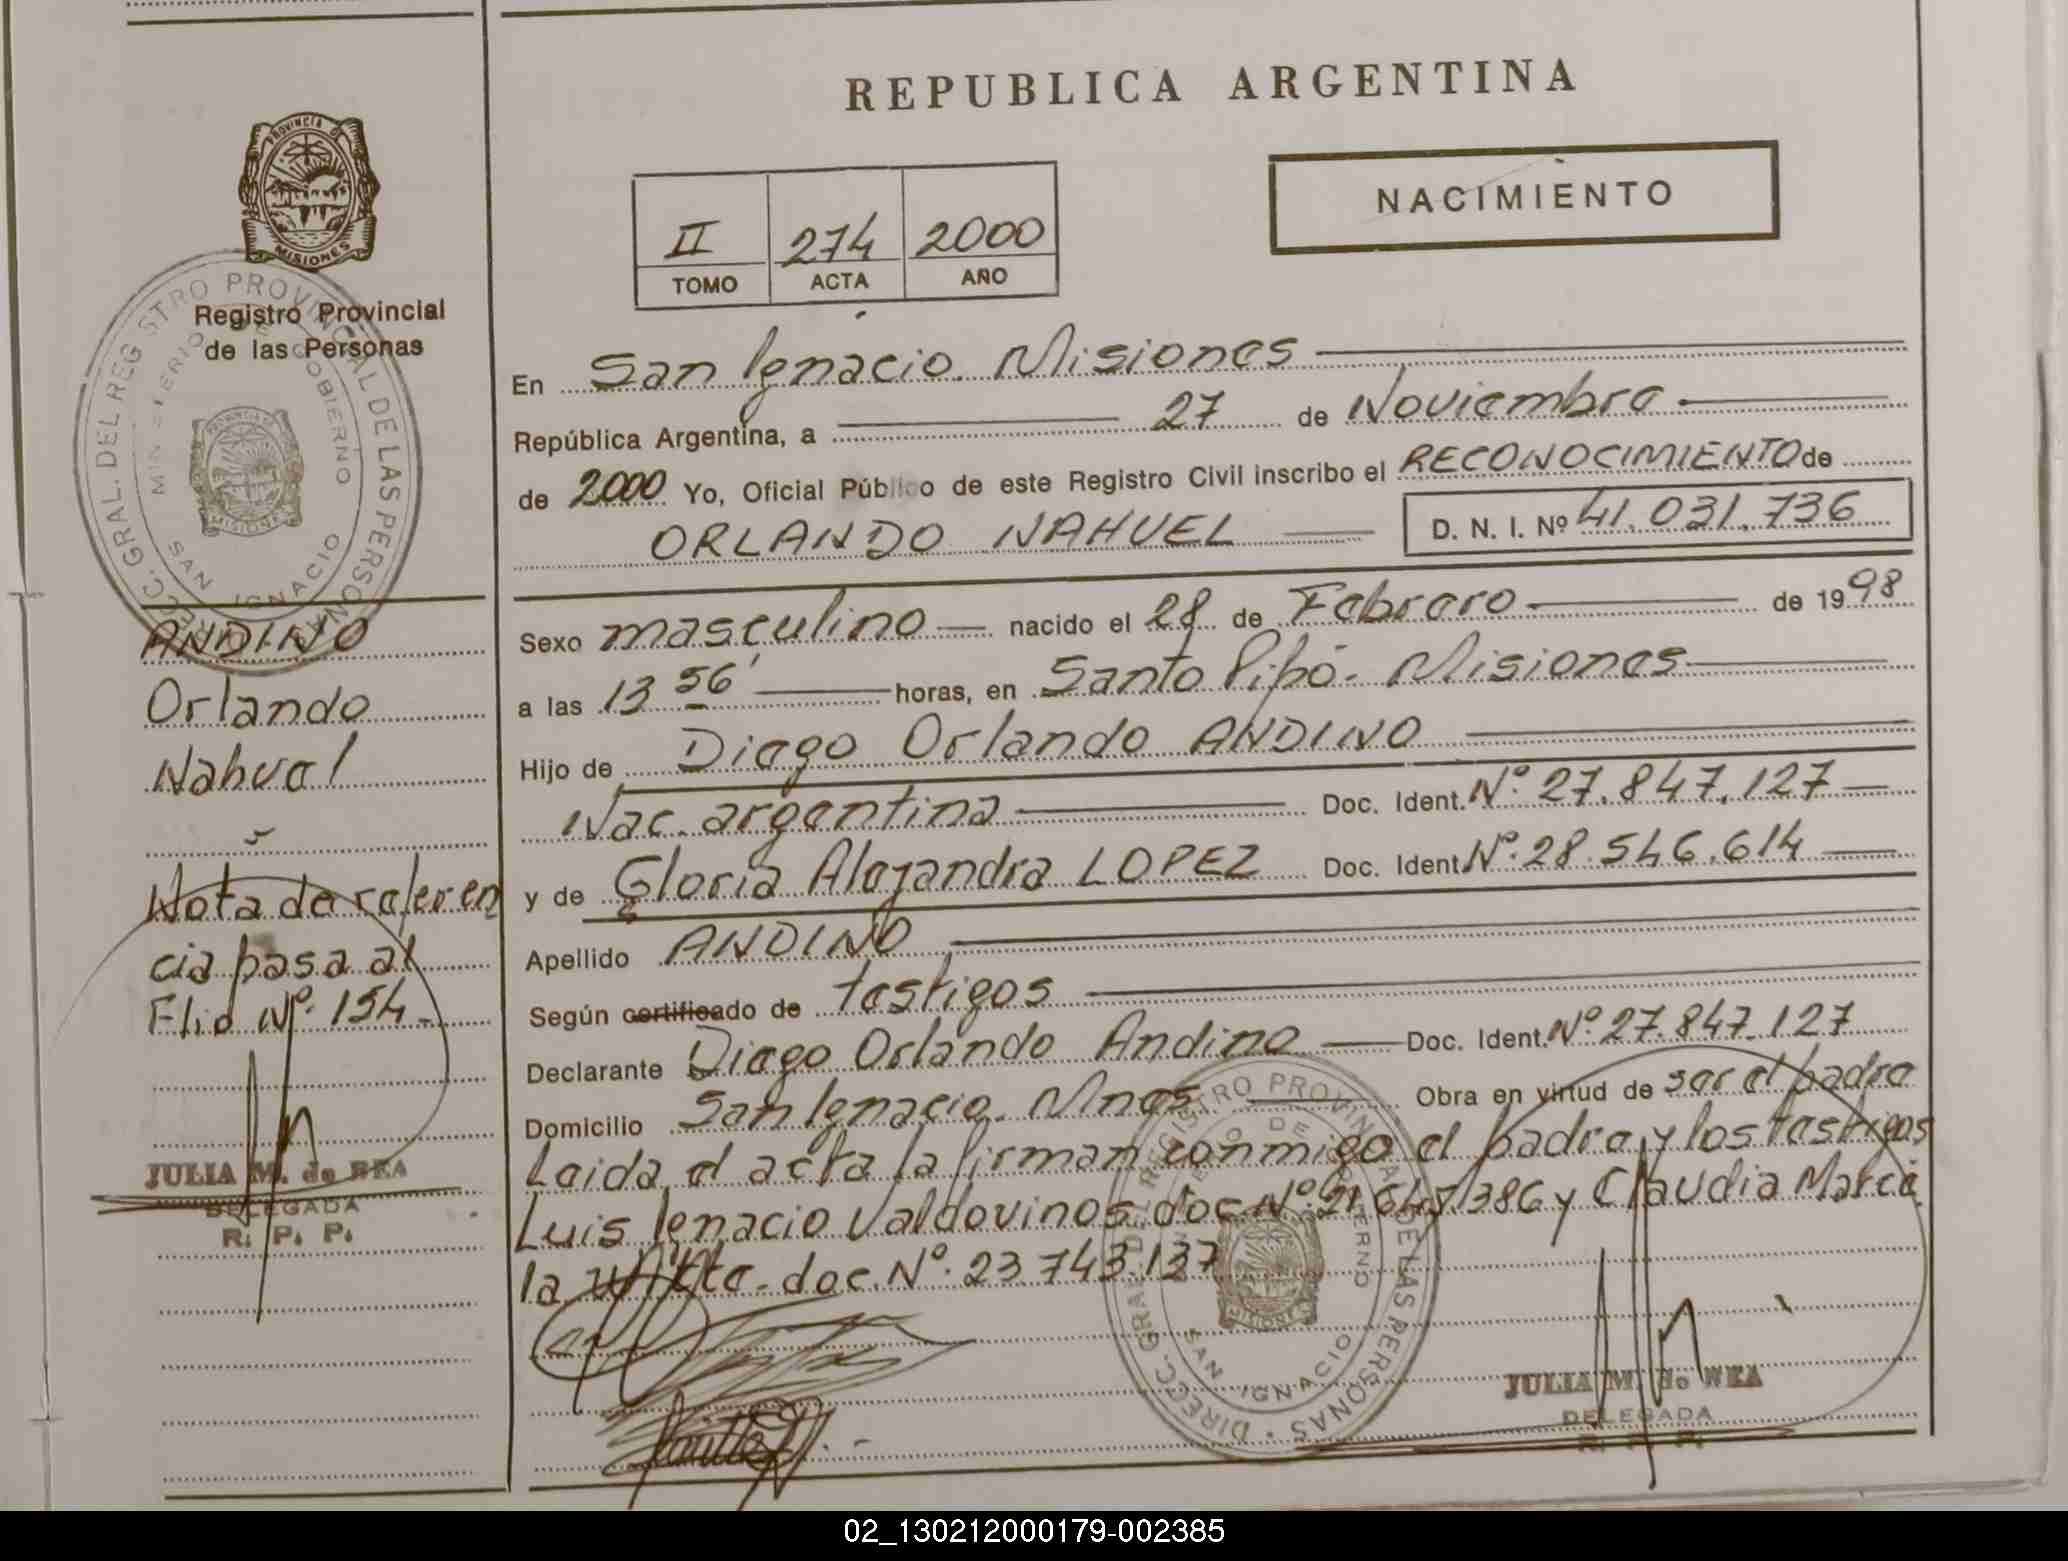 REPUBLICA ARGENTINA
NACIMIENTO
II 274 2000
TOMO ACTA AÑO
PROVINCIA DE
MISIONES
Registro Provincial
de las Personas
DIRECC. GRAL. DEL REGISTRO PROVINCIAL DE LAS PERSONAS
MINISTERIO DE GOBIERNO
SAN IGNACIO
ANDINO
Orlando
Nahuel
Nota de referen
cia pasa al
Flio Nº. 154.
JULIA M. de REA
DELEGADA
R. P. P.
En San Ignacio. Misiones
República Argentina, a 27 de Noviembre
de 2000 Yo, Oficial Público de este Registro Civil inscribo el RECONOCIMIENTO de
ORLANDO NAHUEL D. N. I. Nº 41.031.736
Sexo masculino nacido el 28 de Febrero de 1998
a las 13 56' horas, en Santo Pipó. Misiones
Hijo de Diego Orlando ANDINO
Nac. argentina Doc. Ident. Nº. 27.847.127
y de Gloria Alejandra LOPEZ Doc. Ident. Nº. 28.546.614
Apellido ANDINO
Según certificado de testigos
Declarante Diego Orlando Andino Doc. Ident. Nº 27.847.127
Domicilio San Ignacio. Mnes. Obra en virtud de ser el padre
Leida el acta la firman conmigo el padre y los testigos
Luis Ignacio Valdovinos doc Nº. 21 645 386 y Claudia Marce
la doc. Nº. 23 743.137
DIRECC. GRAL. DEL REGISTRO PROVINCIAL DE LAS PERSONAS
MINISTERIO DE GOBIERNO
MISIONES
SAN IGNACIO
JULIA M. de REA
DELEGADA
R. P. P.
02_130212000179-002385